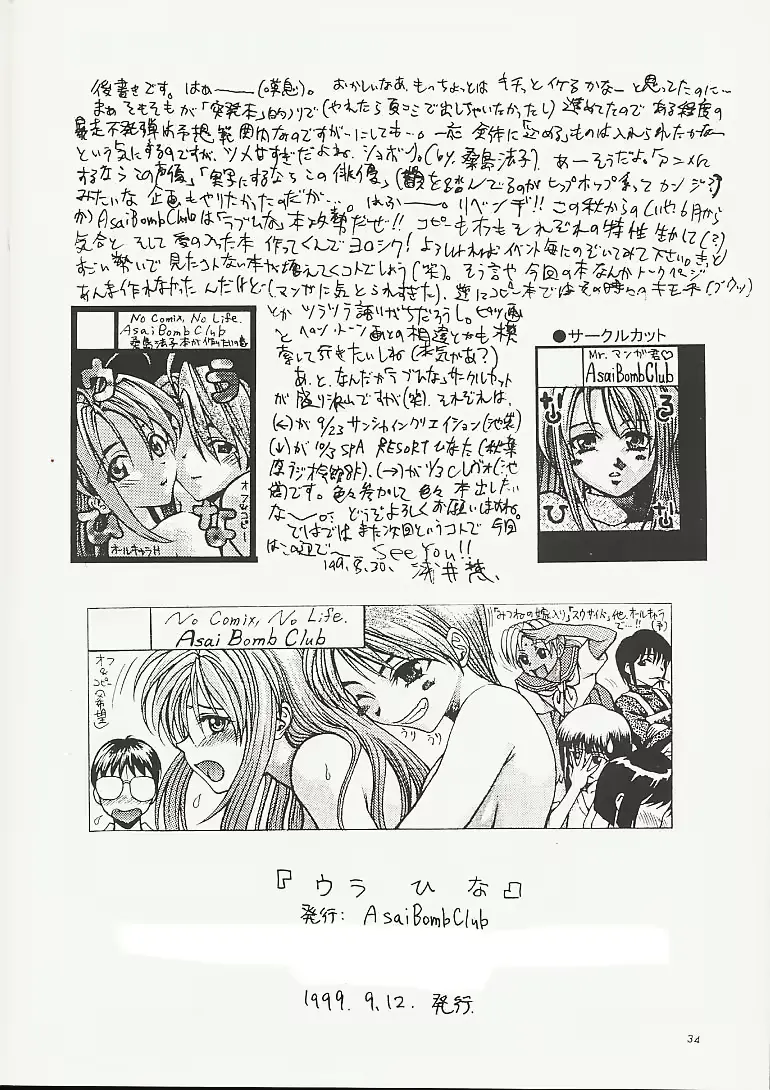 後書きです。はぁ———(嘆息)。おかしいなあ、もっちょっとは キチっと イケるかなーと思ってたのに…
まぁ そもそもが「突発本」的ノリで(やれたら夏コミで出しちゃいたかったし)進めてたので ある程度の
暴走不発弾は予想範囲内なのですが…にしても…。一応 全体に「込める」ものは入れられたかなー
という気にするのですが、ツメ甘すぎだよね。ショボーン。(by.桑島法子)。あーそうだよ。「アニメに
するなら この声優」「実写にするなら この俳優」
みたいな 企画も やりたかったのだが…。はふぅ——。リベンヂ!! この秋からの(いや6月から
か)AsaiBombClubは「ラブひな」本攻勢だぜ!! コピーもオフも それぞれの 特性 生かして(?)
気合と そして 愛の入った本 作ってくんで ヨロシク! よろしければ イベント毎にのぞいてみて下さい。きっと
すごい勢いで 見たコトない本が増えてくコトでしょう(笑)。そう言や 今回の本なんか トークページ
あんま作れなかったんだけど…(マンガに気とられすぎた)、逆にコピー本では その時々の キモチ
とか ツラツラ語りがちだろうし。
と ペン・トーン 画との相違とかも模
索して行きたいしね(本気かあ?)
あ、と、なんだか「ラブひな」サークルカット
が 盛り沢山ですが(笑)、それぞれは、
(←)が 9/23 サンシャインクリエイション(池袋)
(↓)が 10/3 SPA RESORT ひなた(秋葉
原ラジオ会館8F)、(→)が 1/3 Cレヴォ(池
袋)です。色々参加して 色々 本出したい
な〜。どうぞよろしくお願いしますね。
ではでは また次回というコトで 今回
はこの辺で〜 See You!!
'99.8.30. 浅井
No Comix, No Life.
AsaiBombClub
桑島法子本が作りたい
らぶひな
オフ&コピー
オールキャラH
●サークルカット
Mr.マンガ君♡
AsaiBombClub
なるひな
No Comix, No Life.
Asai Bomb Club
オフ&コピー(希望)
うり うり
「みつねの嫁入り」「スウサイド」他、オールキャラ
で…!!(予)
『ウラ ひな』
発行: AsaiBombClub
1999. 9.12. 発行.
34